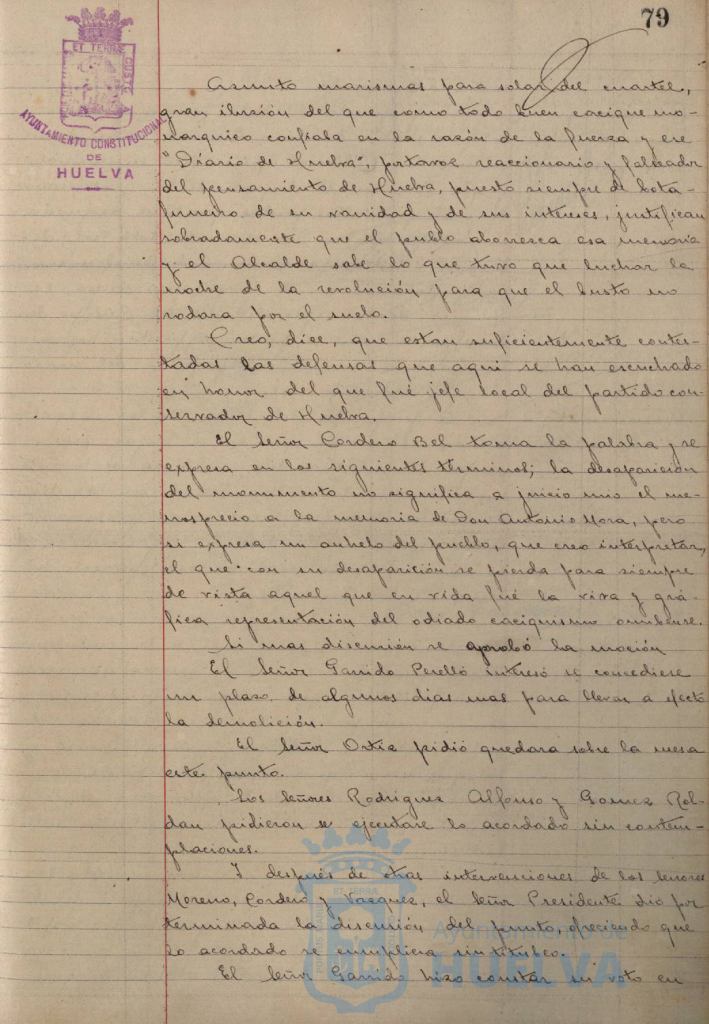 79
ET TERRÆ CUSTO
AYUNTAMIENTO CONSTITUCIONAL
DE
HUELVA
Asunto marismas para solar del cuartel,
gran ilusión del que como todo buen cacique mo-
narquico confiaba en la razón de la fuerza y ese
"Diario de Huelva", portavoz reaccionario y falseador
del pensamiento de Huelva, puesto siempre de bota-
fumeiro de su vanidad y de sus intereses, justifican
sobradamente que el pueblo aborresca esa memoria
y el Alcalde sabe lo que tuvo que luchar la
noche de la revolución para que el busto no
rodara por el suelo.
Creo, dice, que estan suficientemente contes-
tadas las defensas que aqui se han escuchado
en honor del que fué jefe local del partido con-
servador de Huelva.
El Señor Cordero Bel toma la palabra y se
expresa en los siguientes términos; la desaparición
del monumento no significa a juicio mio el me-
nosprecio a la memoria de Don Antonio Mora, pero
si expresa un anhelo del pueblo, que creo interpretar,
el que con su desaparición se pierda para siempre
de vista aquel que en vida fué la viva y grá-
fica representación del odiado caciquismo onubense.
Si mas discusión se aprobó la moción
El Señor Garrido Perelló interesó se concediese
un plazo de algunos dias mas para llevar a efecto
la demolición.
El Señor Ortiz pidió quedara sobre la mesa
este punto.
Los Señores Rodriguez Alfonso y Gomez Rol-
dan pidieron se ejecutare lo acordado sin contem-
placiones.
Y después de otras intervenciones de los señores
Moreno, Cordero y Vazquez, el Señor Presidente dio por
terminada la discusión del punto, ofreciendo que
lo acordado se cumpliera sin titubeo.
El Señor Garrido hizo constar su voto en
Ayuntamiento de
HUELVA